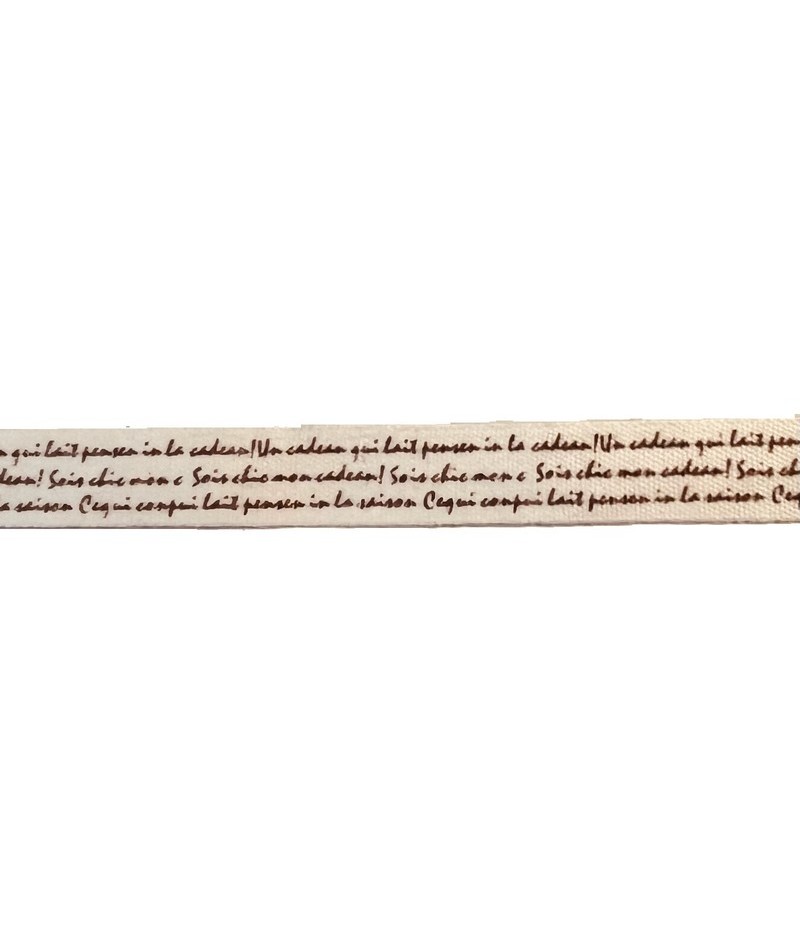 n qui lait pensen in la cadeau! Un cadeau qui lait pensen in la cadeau! Un cadeau qui lait pen
deau! Sois chic mon c Sois chic mon cadeau! Sois chic mon c Sois chic mon cadeau! Sois ch
a saison Cequi conpui lait pensen in la saison Cequi conpui lait pensen in la saison Ceq